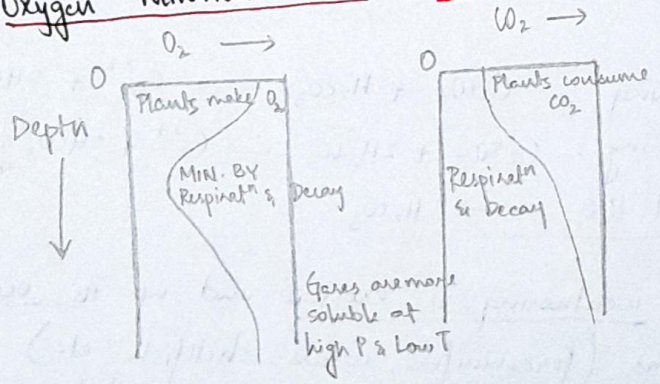 Oxygen
O₂ →
CO₂ →
0
Plants make O₂
Depth
MIN. BY
Respiratⁿ & Decay
Gases are more
soluble at
high P & Low T
0
Plants consume
CO₂
Respiratⁿ
& Decay